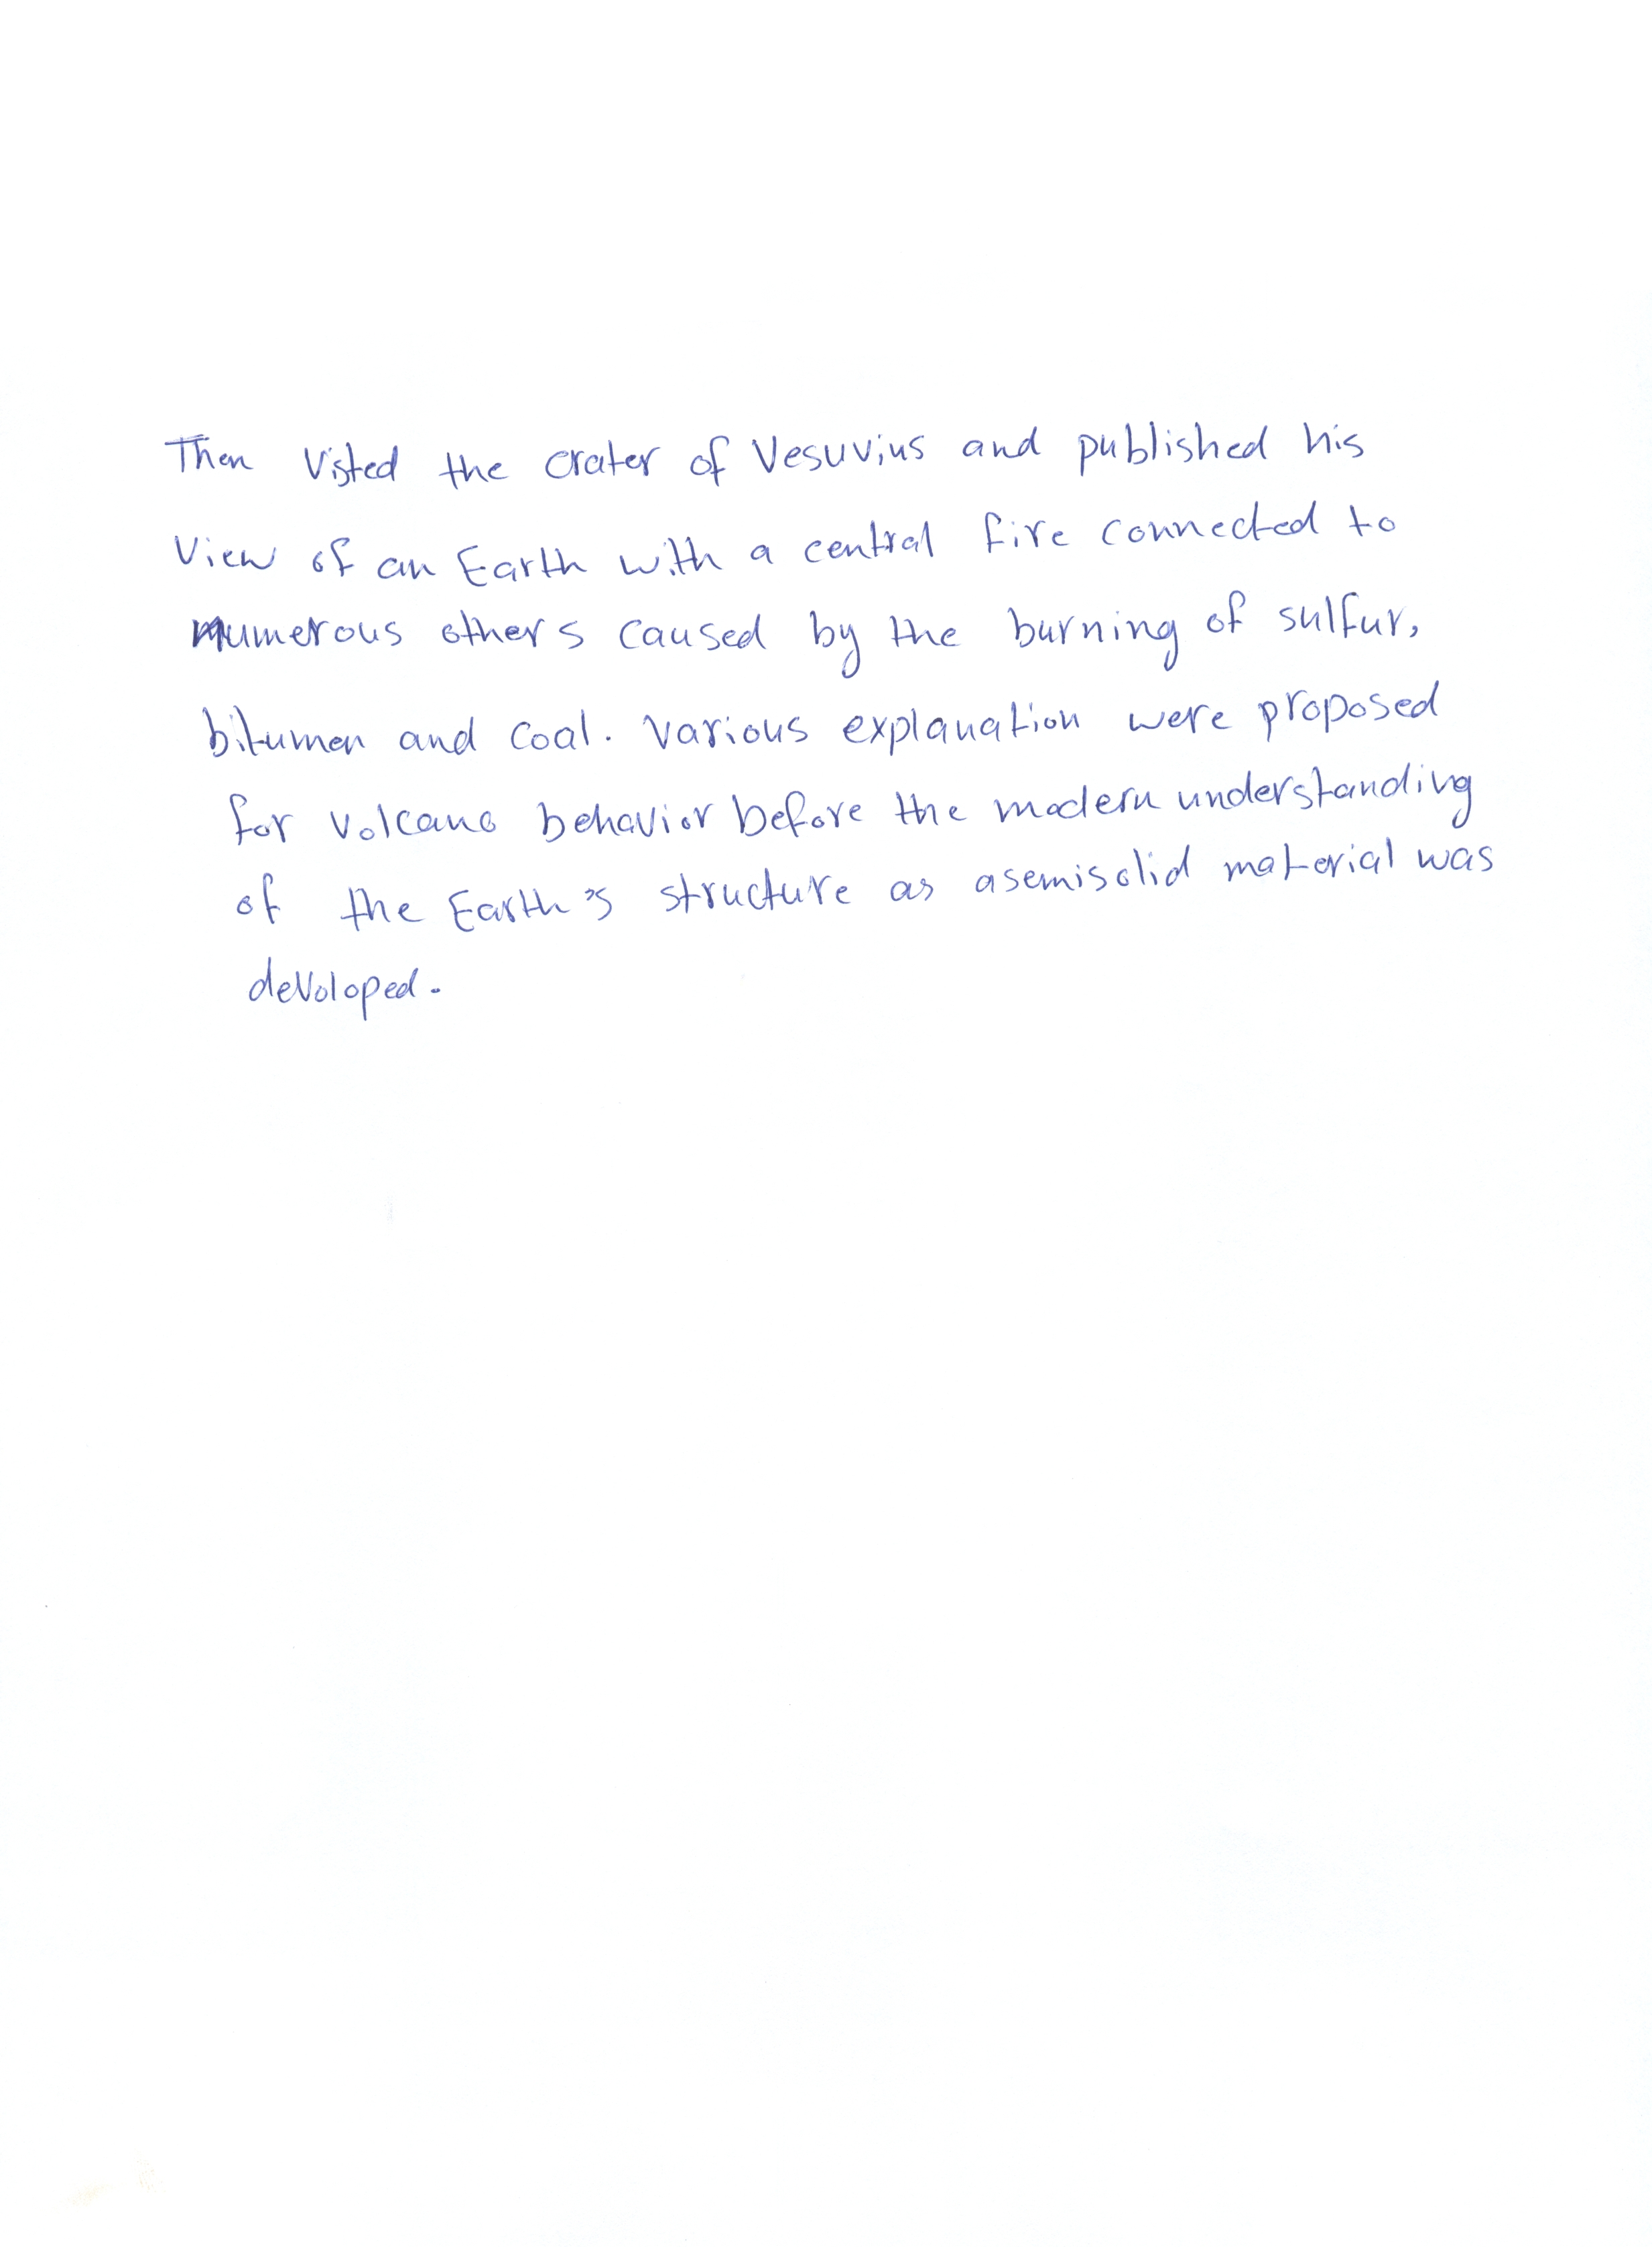 Then Visted the crater of Vesuvius and published his
View of an Earth with a central fire connected to
numerous others caused by the burning of sulfur,
bitumen and coal. Various explanation were proposed
for volcano behavior before the modern understanding
of the Earth's structure as asemisolid material was
devoloped.